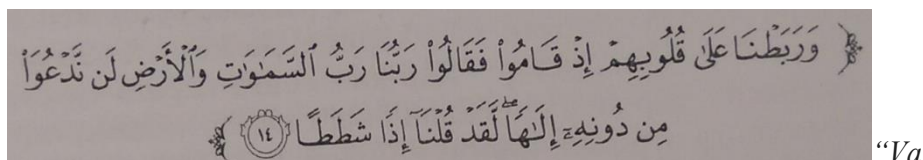 ﴿ وَرَبَطْنَا عَلَىٰ قُلُوبِهِمْ إِذْ قَامُوا۟ فَقَالُوا۟ رَبُّنَا رَبُّ ٱلسَّمَـٰوَٰتِ وَٱلْأَرْضِ لَن نَّدْعُوَا۟
مِن دُونِهِۦٓ إِلَـٰهًا ۖ لَّقَدْ قُلْنَآ إِذًا شَطَطًا ١٤ ﴾ “Va